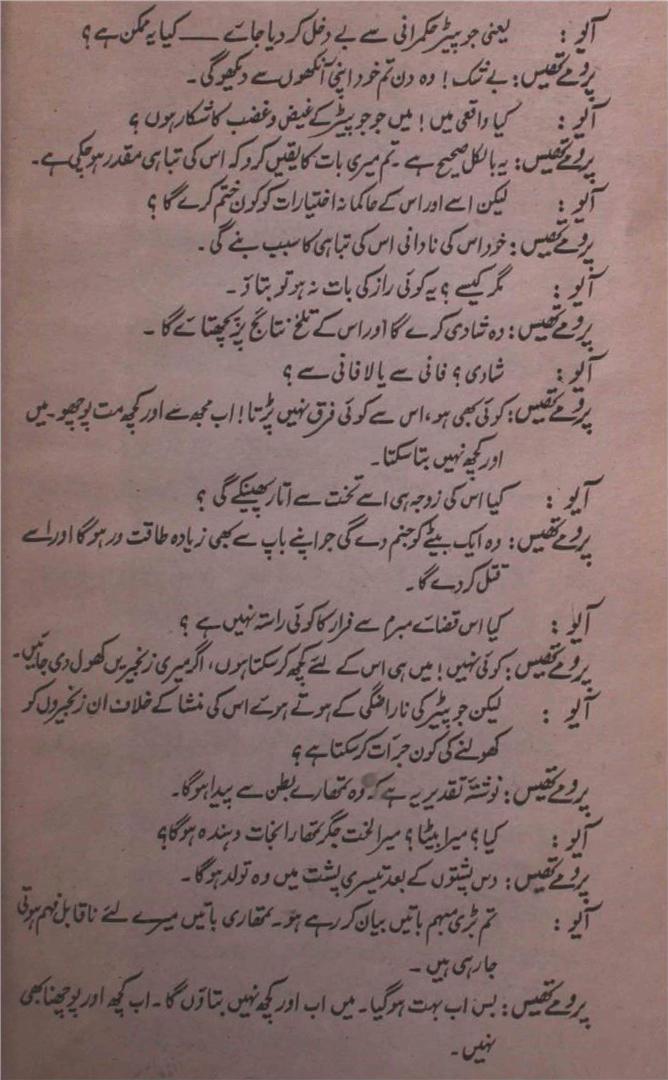 آیو : یعنی جوپیٹر حکمرانی سے بے دخل کر دیا جائے —— کیا یہ ممکن ہے ؟
پرومے تھیس: بے شک ! وہ دن تم خود اپنی آنکھوں سے دیکھو گی۔
آیو : کیا واقعی میں ! میں جو جوپیٹر کے غیض و غضب کا شکار ہوں ؟
پرومے تھیس: یہ بالکل صحیح ہے ۔ تم میری بات کا یقیں کرو کہ اس کی تباہی مقدر ہو چکی ہے۔
آیو : لیکن اسے اور اس کے حاکمانہ اختیارات کو کون ختم کرے گا ؟
پرومے تھیس: خود اس کی نادانی اس کی تباہی کا سبب بنے گی ۔
آیو : مگر کیسے ؟ یہ کوئی راز کی بات نہ ہو تو بتاؤ ۔
پرومے تھیس: وہ شادی کرے گا اور اس کے تلخ نتائج پر پچھتائے گا ۔
آیو : شادی ؟ فانی سے یا لافانی سے ؟
پرومے تھیس: کوئی بھی ہو ، اس سے کوئی فرق نہیں پڑتا ! اب مجھ سے اور کچھ مت پوچھو ۔ میں
اور کچھ نہیں بتا سکتا۔
آیو : کیا اس کی زوجہ ہی اسے تخت سے اتار پھینکے گی ؟
پرومے تھیس: وہ ایک بیٹے کو جنم دے گی جو اپنے باپ سے بھی زیادہ طاقت ور ہوگا اور اسے
قتل کر دے گا ۔
آیو : کیا اس قضائے مبرم سے فرار کا کوئی راستہ نہیں ہے ؟
پرومے تھیس: کوئی نہیں ! میں ہی اس کے لئے کچھ کر سکتا ہوں ، اگر میری زنجیریں کھول دی جائیں۔
آیو : لیکن جوپیٹر کی ناراضگی کے ہوتے ہوئے اس کی منشا کے خلاف ان زنجیروں کو
کھولنے کی کون جرأت کر سکتا ہے ؟
پرومے تھیس: نوشتۂ تقدیر یہ ہے کہ وہ تمھارے بطن سے پیدا ہوگا۔
آیو : کیا ؟ میرا بیٹا ؟ میرا لخت جگر تمھارا نجات دہندہ ہوگا؟
پرومے تھیس: دس پشتوں کے بعد تیسری پشت میں وہ تولد ہوگا ۔
آیو : تم بڑی مبہم باتیں بیان کر رہے ہو ۔ تمھاری باتیں میرے لئے ناقابل فہم ہوتی
جا رہی ہیں ۔
پرومے تھیس: بس اب بہت ہو گیا ۔ میں اب اور کچھ نہیں بتاؤں گا ۔ اب کچھ اور پوچھنا بھی
نہیں ۔